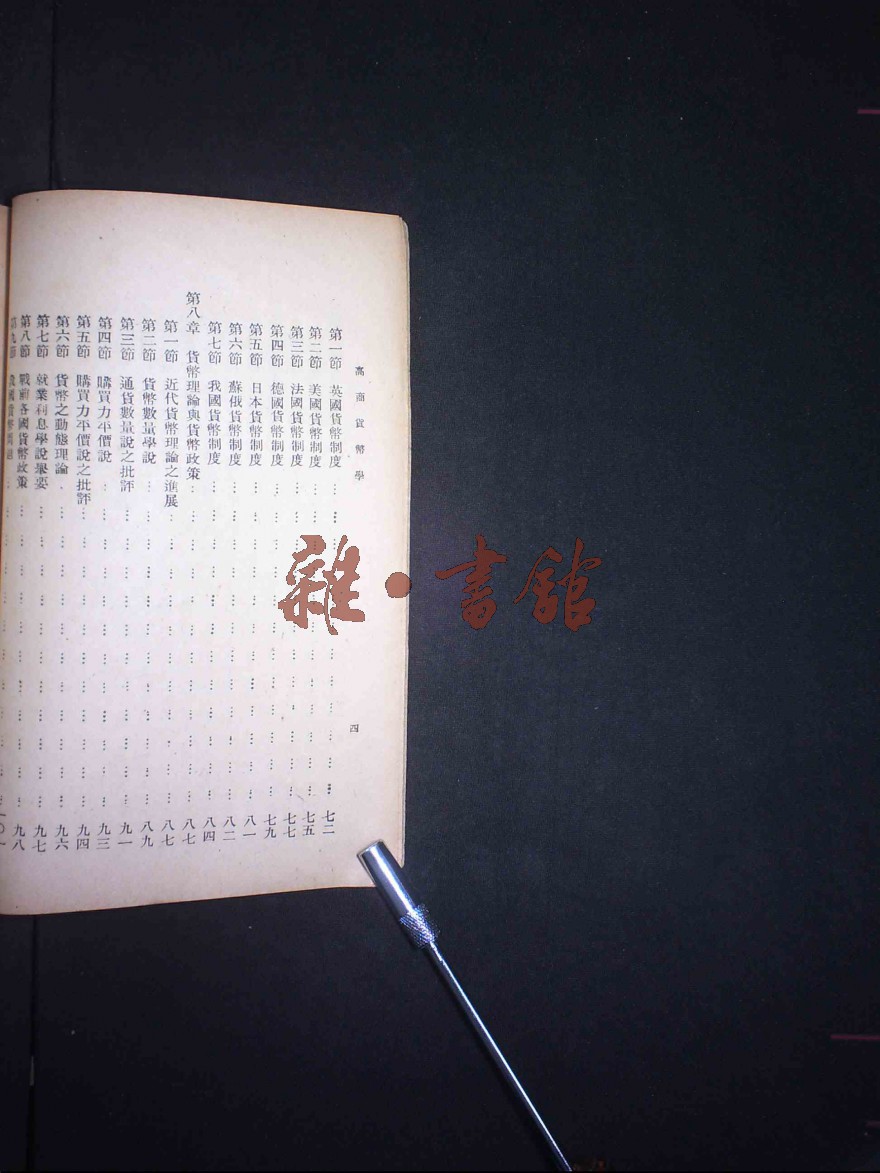 高商貨幣學
四
第一節 英國貨幣制度 七二
第二節 美國貨幣制度 七五
第三節 法國貨幣制度 七七
第四節 德國貨幣制度 七九
第五節 日本貨幣制度 八一
第六節 蘇俄貨幣制度 八二
第七節 我國貨幣制度 八四
第八章 貨幣理論與貨幣政策 八七
第一節 近代貨幣理論之進展 八七
第二節 貨幣數量學說 八九
第三節 通貨數量說之批評 九一
第四節 購買力平價說 九三
第五節 購買力平價說之批評 九四
第六節 貨幣之動態理論 九六
第七節 就業利息學說舉要 九七
第八節 戰前各國貨幣政策 九八
第九節 國貨幣 一〇一
雜·書館